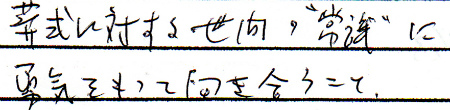 葬式に対する世間の"常識"に
勇気をもって向き合うこと.